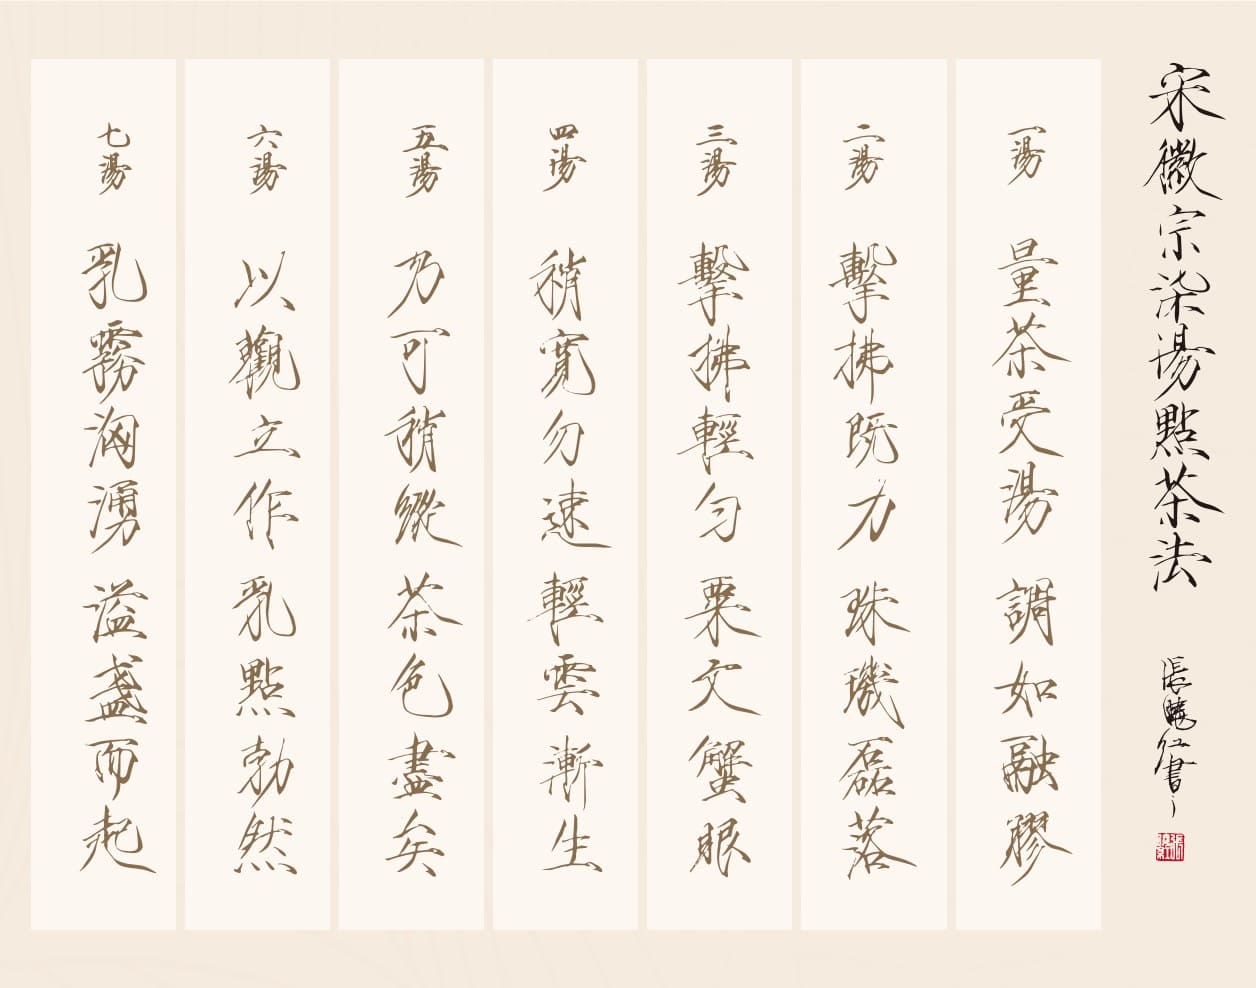 宋徽宗染湯點茶法
張曉紅書
一湯 量茶受湯 調如融膠
二湯 擊拂既力 珠璣磊落
三湯 擊拂輕勻 粟文蟹眼
四湯 稍寬勿速 輕雲漸生
五湯 乃可稍縱 茶色盡矣
六湯 以觀立作 乳點勃然
七湯 乳霧洶湧 溢盞而起